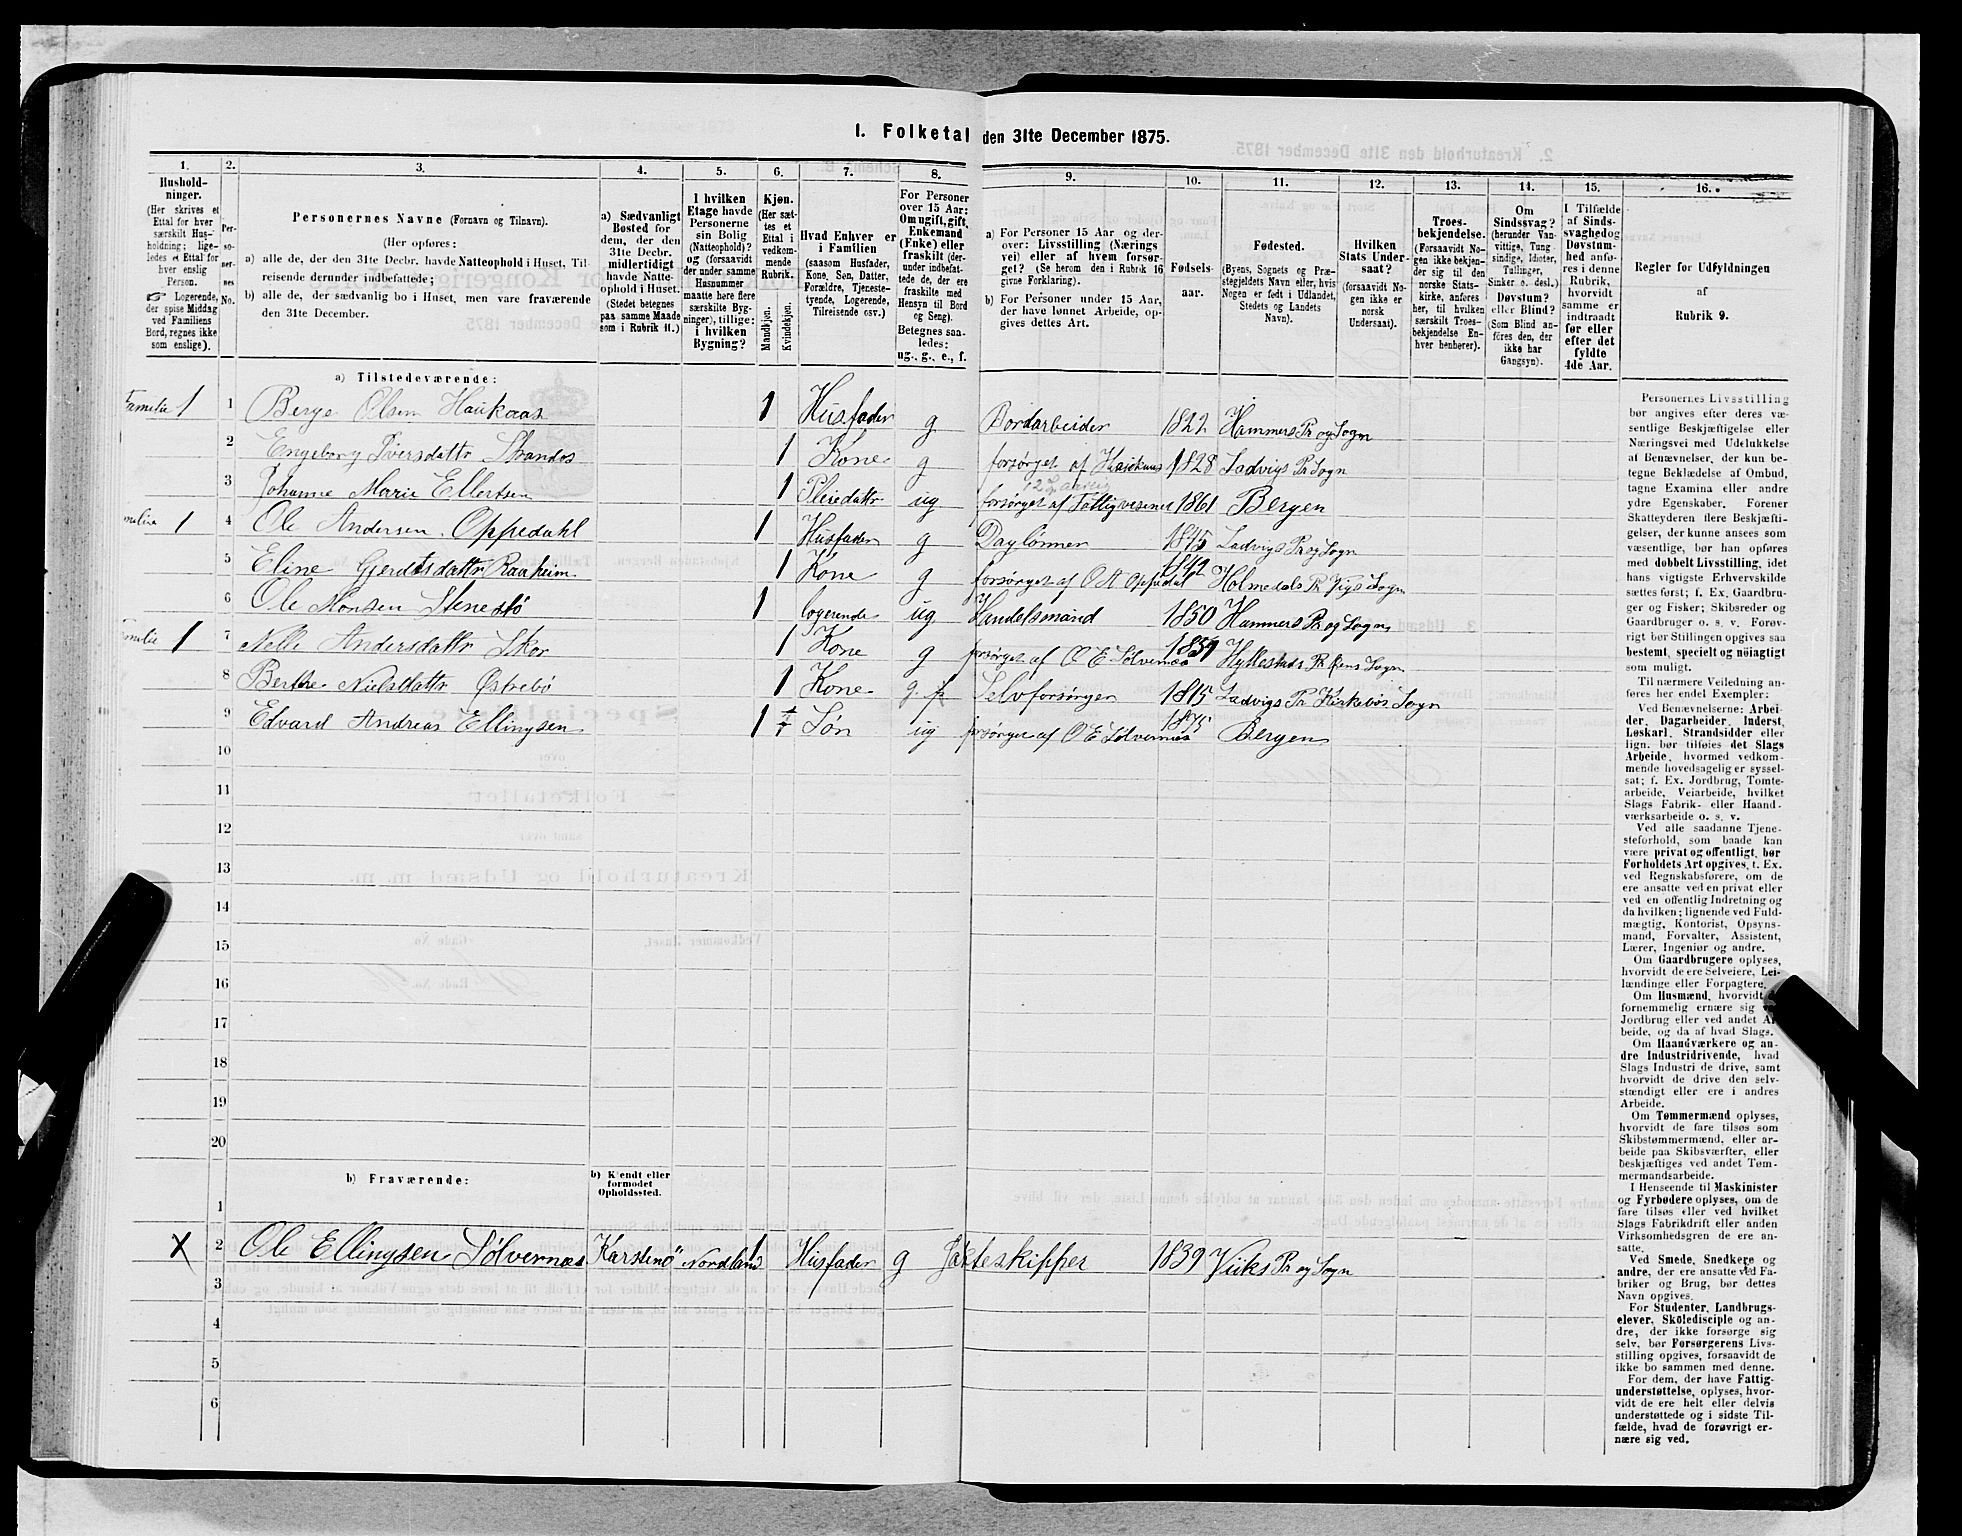 1. Folketal den 31te December 1875.
1. 2. 3. 4. 5. 6. 7. 8. 9. 10. 11. 12. 13. 14. 15. 16.
Hushold-
ninger.
(Her skrives et
Ettal for hver
særskilt Hus-
holdning; lige-
ledes et Ettal for
hver enslig
Person.
☞ Logerende,
der spise Middag
ved Familiens
Bord, regnes ikke
som enslige).
Per-
so-
ner-
nes
No.
Personernes Navne (Fornavn og Tilnavn).
(Her opføres:
a) alle de, der den 31te Decbr. havde Natteophold i Huset, Til-
reisende derunder indbefattede;
b) alle de, der sædvanlig bo i Huset, men vare fraværende
den 31te December.
a) Sædvanligt
Bosted for
dem, der den
31te Decbr.
midlertidigt
havde Natte-
ophold i Huset.
(Stedet betegnes
paa samme Maade
som i Rubrik 11.)
I hvilken
Etage havde
Personerne
sin Bolig
(Natteophold)?
og (forsaavidt
der under samme
Husnummer
maatte høre flere
særskilte Byg-
ninger), tillige:
i hvilken
Bygning?
Kjøn.
(Her sæt-
tes et
Ettal i
vedkom-
mende
Rubrik.
Mandkjøn.
Kvindekjøn.
Hvad Enhver er
i Familien
(saasom Husfader,
Kone, Søn, Datter,
Forældre, Tjeneste-
tyende, Logerende,
Tilreisende osv.)
For Personer
over 15 Aar:
Om ugift, gift,
Enkemand
(Enke) eller
fraskilt (der-
under indbefat-
tede de, der ere
fraskilte med
Hensyn til Bord
og Seng).
Betegnes saa-
ledes:
ug., g., e., f.
a) For Personer 15 Aar og der-
over: Livsstilling (Nærings
vei) eller af hvem forsør-
get? (Se herom den i Rubrik 16
givne Forklaring).
b) For Personer under 15 Aar,
der have lønnet Arbeide, op-
gives dettes Art.
Fødsels-
aar.
Fødested.
(Byens, Sognets og Præ-
stegjeldets Navn eller, hvis
Nogen er født i Udlandet,
Stedets og Landets
Navn).
Hvilken
Stats Under-
saat?
(forsaavidt No-
gen ikke er
norsk
Undersaat).
Troes-
bekjendelse.
(Forsaavidt No-
gen ikke bekjen-
der sig til den
norske Stats-
kirke, anføres
her, til hvilken
særskilt Troes-
bekjendelse En-
hver henhører).
Om
Sindssvag?
(herunder Van-
vittige, Tung
sindige, Idioter,
Tullinger,
Sinker o. desl.)
Døvstum?
eller Blind?
(Som Blind an-
føres den, der
ikke har
Gangsyn).
I Tilfælde
af Sinds-
svaghed og
Døvstum-
hed anfø-
res i denne
Rubrik,
hvorvidt
samme er
indtraadt
før eller
efter det
fyldte
4de Aar.
Regler for Udfyldningen
af
Rubrik 9.
a) Tilstedeværende:
Familie 1 1 Berge Olsen Haukaas 1 Husfader g Bordarbeider 1822 Hammers Pr og Sogn
2 Engeborg Iversdattr Strandos 1 Kone g forsørget af 1828 Ladvigs Pr Sogn
3 Johanne Marie Ellertsen 1 Pleiedattr ug forsørget af Fattigvæsenet 1861 Bergen
1 4 Ole Andersen Oppedahl 1 Husfader g Daglønner 1845 Ladvigs Pr og Sogn
5 Eline Gjerdtsdattr Raaheim 1 Kone g forsørget af O A Oppedal 1842 Holmedals Pr Sogn
6 Ole Monsen Stenestø 1 logerende ug Handelsmand 1850 Hammers Pr og Sogn
Familie 1 7 Nelle Andersdattr Skor 1 Kone g forsørget af O E Sølvernæs Hyllestads Pr Sogn
8 Berthe Nielsdattr Østrebø 1 Kone g Selvforsørger 1815 Ladvigs Pr Kirkebøs Sogn
9 Edvard Andreas Ellingsen 1 Søn ug forsørget af O E Sølvernæs 1875 Bergen
10
11
12
13
14
15
16
17
18
19
20
b) Fraværende:
b) Kjendt eller
formodet
Opholdssted.
1
X 2 Ole Ellingsen Sølvernæs Karstenø Nordland 1 Husfader g Jagteskipper 1839 Viiks Pr og Sogn
3
4
5
6
Personernes Livsstilling
bør angives efter deres væ-
sentlige Beskjæftigelse eller
Næringsvei med Udelukkelse
af Benævnelser, der kun be-
tegne Beklædelse af Ombud,
tagne Examina eller andre
ydre Egenskaber. Forener
Skatteyderen flere Beskjæfti-
gelser, der kunne ansees som
væsentlige, bør han opføres
med dobbelt Livsstilling, idet
hans vigtigste Erhvervskilde
sættes først; f. Ex. Gaardbru-
ger og Fisker; Skibsreder og
Gaardbruger o. s. v. Forøv-
rigt bør Stillingen opgives saa
bestemt, specielt og nøiagtigt
som muligt.
Til nærmere Veiledning an-
føres her endel Exempler:
Ved Benævnelserne: Arbei-
der, Dagarbeider, Inderst,
Løskarl, Strandsidder eller
lign. bør tilføies det Slags
Arbeide, hvormed vedkom-
mende hovedsagelig er syssel-
sat; f. Ex. Jordbrug, Tomte-
arbeide, Veiarbeide, hvilket
Slags Fabrik- eller Haand-
værksarbeide o. s. v.
Ved alle saadanne Tjene-
steforhold, som baade kan
være privat og offentligt, bør
Forholdets Art opgives, t. Ex.
ved Regnskabsførere, om de
ere ansatte ved en privat eller
ved en offentlig Indretning og
da hvilken; lignende ved Fuld-
mægtig, Kontorist, Opsyns-
mand, Forvalter, Assistent,
Lærer, Ingeniør og andre.
Om Gaardbrugere oplyses,
hvorvidt de ere Selveiere, Lei-
lændinge eller Forpagtere.
Om Husmænd, hvorvidt
fornemmelig ernære sig
Jordbrug eller ved andet Ar-
beide, og da af hvad Slags.
Om Haandværkere og an-
dre Industridrivende, hvad
Slags Industri de drive, samt
hvorvidt de drive den selv-
stændigt eller ere i andres
Arbeide.
Om Tømmermænd oplyses,
hvorvidt de fare tilsøs som
Skibstømmermænd, eller ar-
beide paa Skibsværfter, eller
beskjæftiges ved andet Tøm-
mermandsarbeide.
I Henseende til Maskinister
og Fyrbødere oplyses, om de
fare tilsøs eller ved hvilket
Slags Fabrikdrift eller anden
Virksomhedsgren de ere an-
satte.
Ved Smede, Snedkere og
andre, der ere ansatte ved Fa-
briker og Brug, bør dettes
Navn opgives.
For Studenter, Landbrugs-
elever, Skoledisciple og an-
dre, der ikke forsørge sig
selv, bør Forsørgerens Livs-
stilling opgives, forsaavidt de
ikke bo sammen med denne.
For dem, der have Fattig-
understøttelse, oplyses, hvor-
vidt de ere helt eller delvis
understøttede og i sidste Til-
fælde, hvad de forøvrigt er-
nære sig ved.